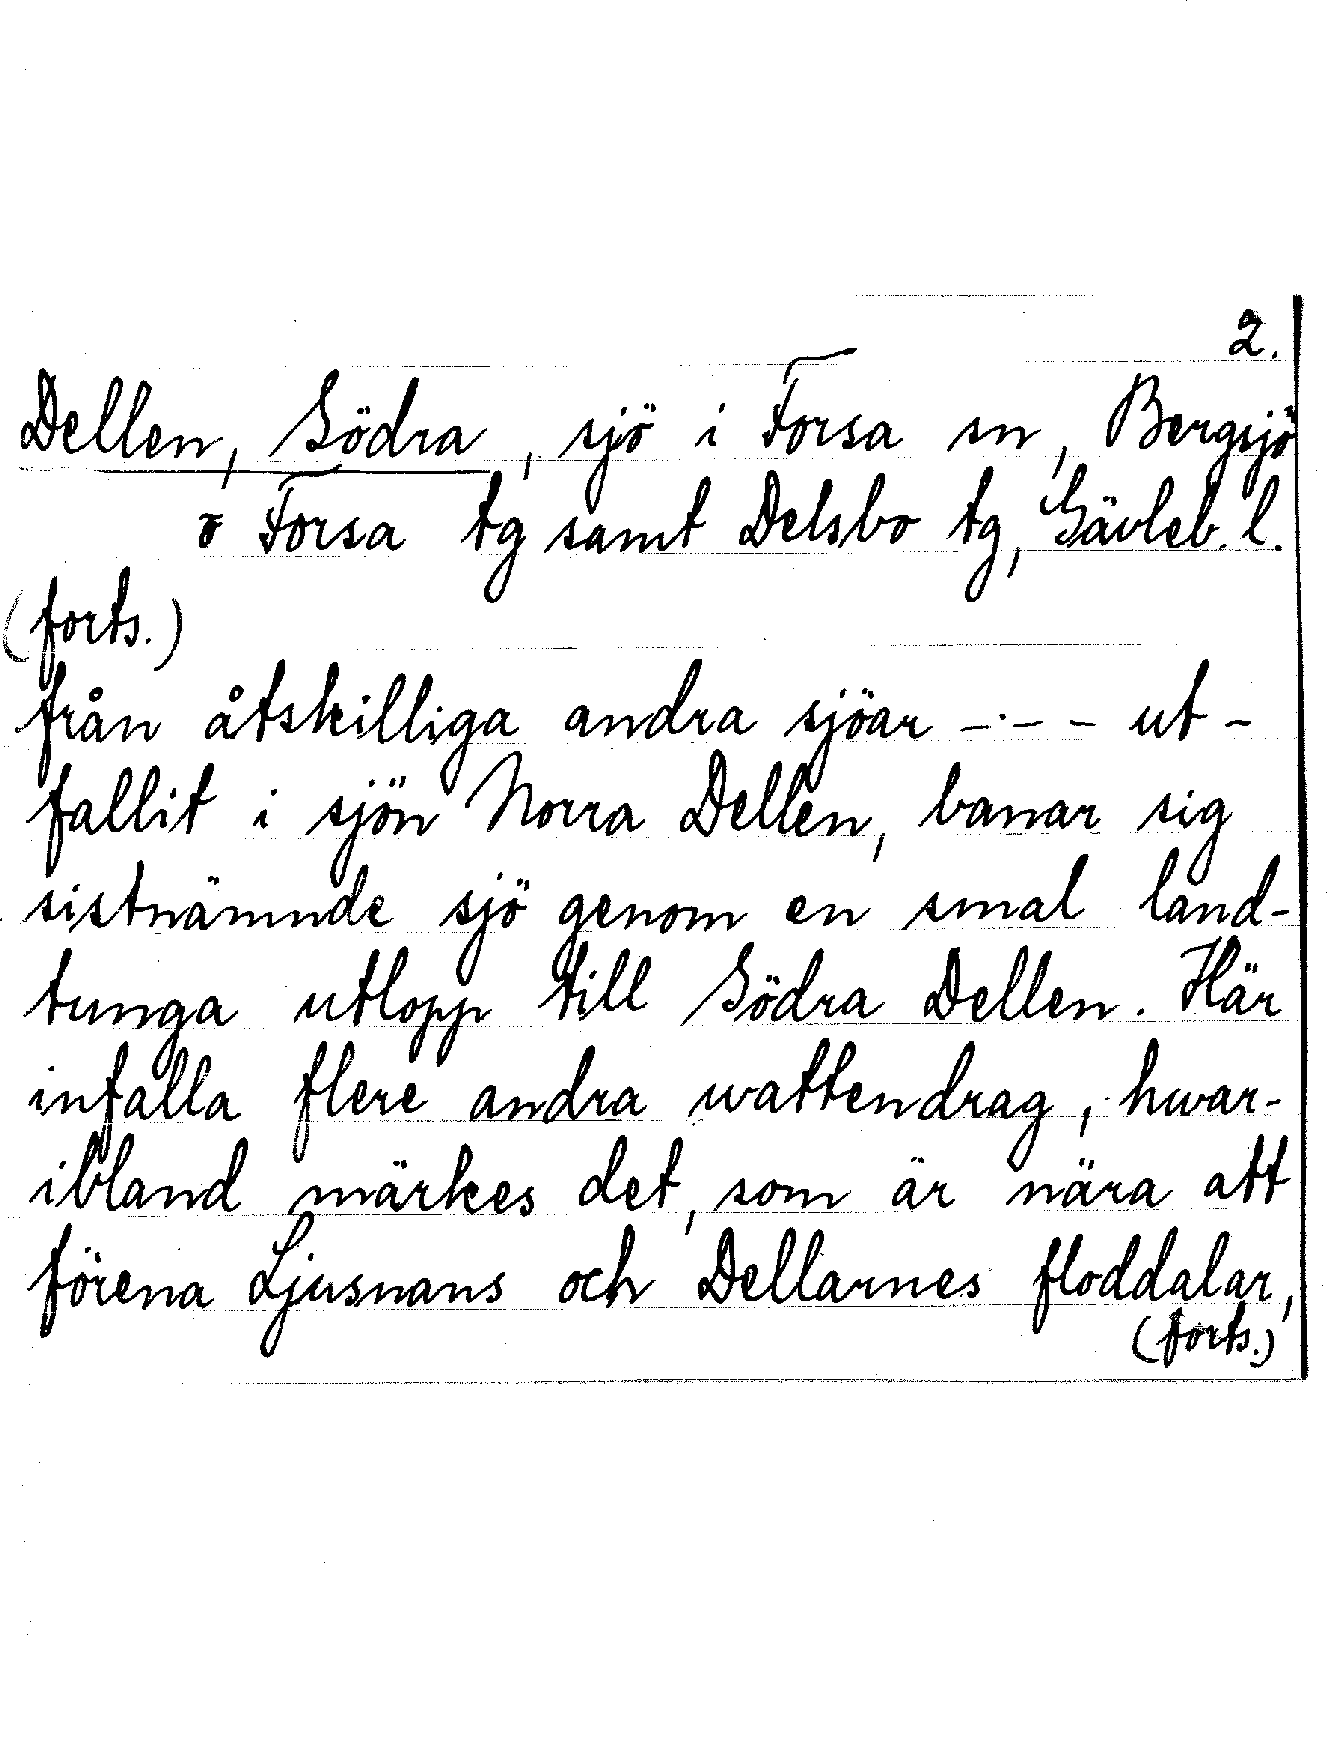 2.
Dellen, Södra, sjö i Forsa sn, Bergsjö
o Forsa tg samt Delsbo tg, Gävleb. l.
(forts.)
från åtskilliga andra sjöar - - - ut-
fallit i sjön Norra Dellen, banar sig
sistnämnde sjö genom en smal land-
tunga utlopp till Södra Dellen. Här
infalla flere andra wattendrag, hwar-
ibland märkes det, som är nära att
förena Ljusnans och Dellarnes floddalar,
(forts.)